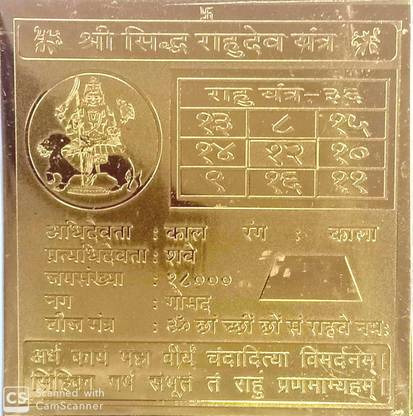 श्री सिद्ध राहुदेव यंत्र
राहु यंत्र-३६
१३ ८ १५
१४ १२ १०
९ १६ ११
अधिदेवता : काल रंग : काला
प्रत्यधिदेवता : शर्व
जपसंख्या : १८०००
नग : गोमद
बीज मंत्र : ॐ छां छीं छों सं राहवे नमः
अर्ध काय महा वीर्यं चंदादित्या विमर्दनम्।
सिंहिका गर्भ संभूतं तं राहुं प्रणमाम्यहम्।
CS Scanned with
CamScanner